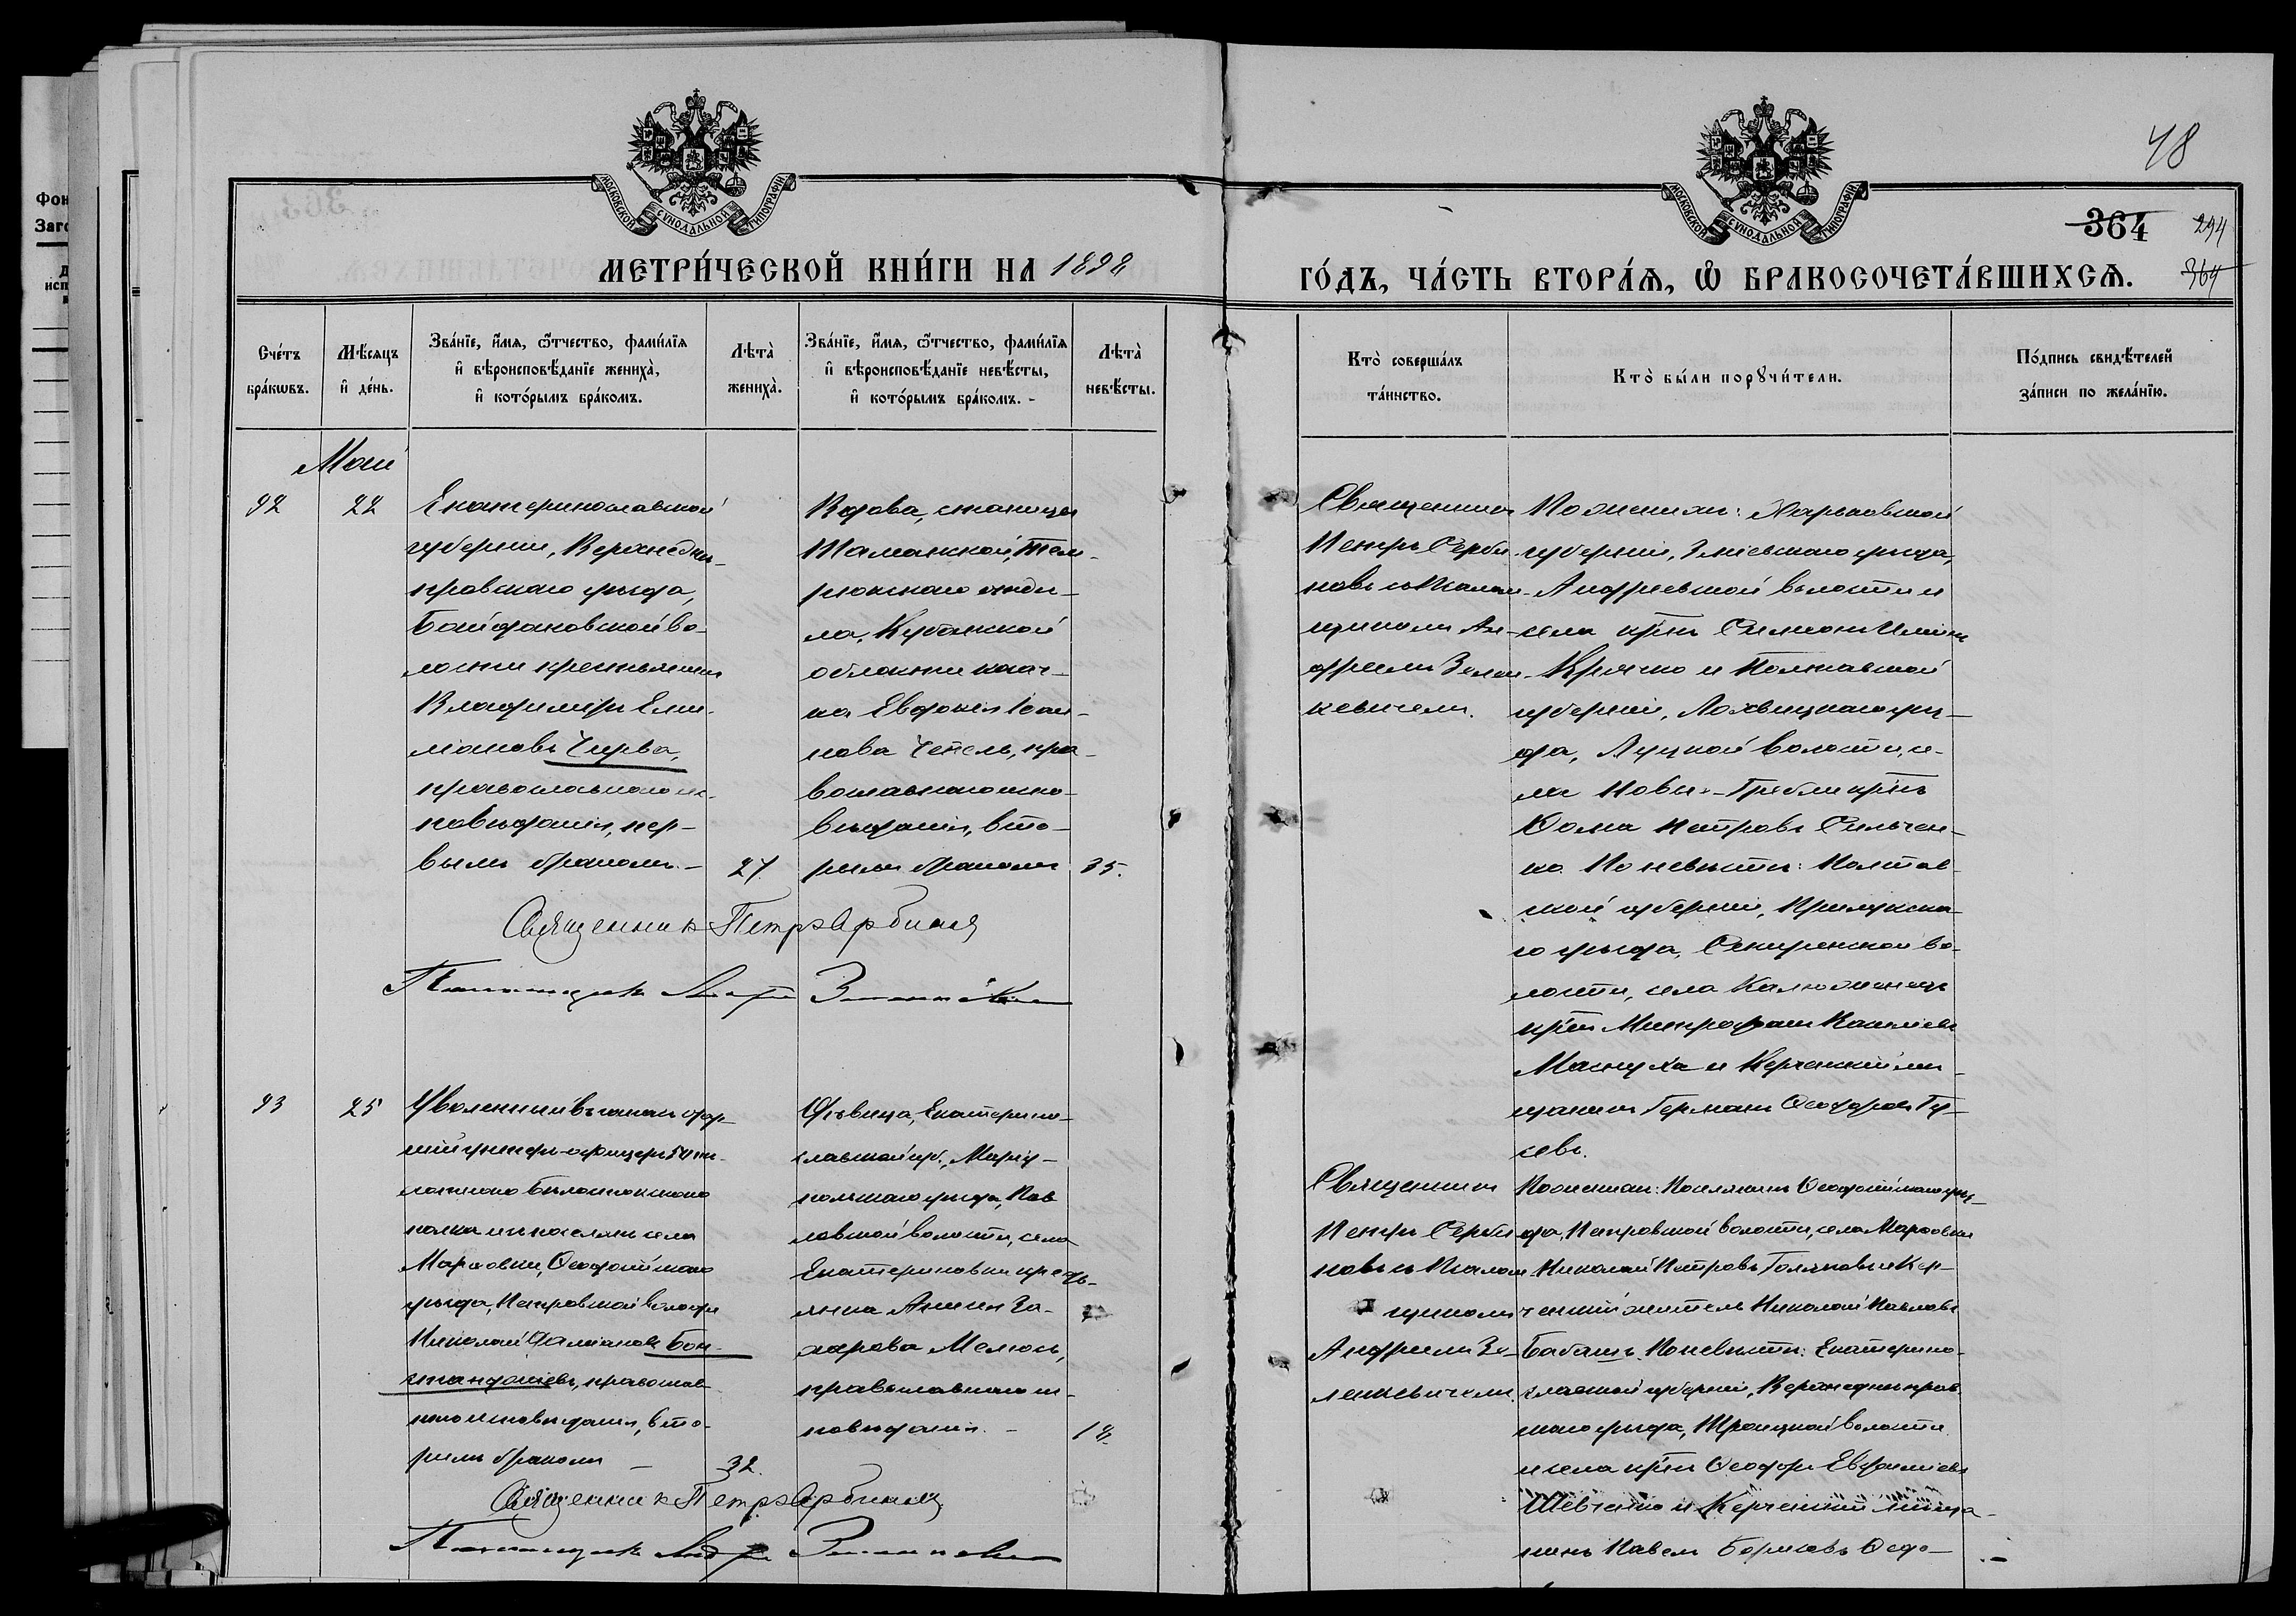 48
364 294
364
МОСКОВСКОЙ СѴНОДАЛЬНОЙ ТИПОГРАФІИ
МОСКОВСКОЙ СѴНОДАЛЬНОЙ ТИПОГРАФІИ
МЕТРИ́ЧЕСКОЙ КНИ́ГИ НА 1898
ГО́ДЪ, ЧА́СТЬ ВТОРА́Я, Ѽ БРАКОСОЧЕТА́ВШИХСЯ.
Сче́тъ
бра́кѡвъ.
Мѣ́сяцъ
и҆ де́нь.
Зва́нїе, и҆́мя, ѻ҆́тчество, фами́лїя
и҆ вѣроисповѣ́данїе жениха̀,
и҆ кото́рымъ бра́комъ.
Лѣта̀
жениха̀.
Зва́нїе, и҆́мя, ѻ҆́тчество, фами́лїя
и҆ вѣроисповѣ́данїе невѣ́сты,
и҆ кото́рымъ бра́комъ.
Лѣта̀
невѣ́сты.
Кто̀ соверша́лъ
та́инство.
Кто̀ бы́ли порꙋчи́тели.
По́дпись свидѣ́телей
за́писи по жела́нїю.
Май
92
22
Екатеринославской
губерніи, Верхнедне-
провскаго уѣзда,
Байдаковской во-
лости крестьянинъ
Владиміръ Ели-
мановъ Чирва,
православнаго ис-
повѣданія, пер-
вымъ бракомъ. —
27.
Вдова, станицы
Таманской, Тем-
рюкскаго отдѣ-
ла, Кубанской
области казач-
ка Евдокія Іоан-
нова Чепель, пра-
вославнаго испо-
вѣданія, вто-
рымъ бракомъ
35.
Священникъ
Петръ Серби-
новъ съ Псалом-
щикомъ Ан-
дреемъ Зелен-
кевичемъ.
По женихѣ: Харьковской
губерніи, Зміевскаго уѣзда,
Андреевской волости и
села кр-нъ Симеонъ Ильинъ
Крячко и Полтавской
губерніи, Лохвицкаго уѣз-
да, Луцкой волости, се-
ла Новы-Гребли кр-нъ
Ѳома Петровъ Сильчен-
ко. По невѣстѣ: Полтав-
ской губерніи, Прилукска-
го уѣзда, Секиренской во-
лости, села Калюжинецъ
кр-нъ Митрофанъ
Маснуха и Керченскій мѣ-
щанинъ Германъ Ѳеодоровъ Гу-
севъ.
Священникъ Петръ Сербиновъ
Псаломщикъ Андрей Зеленкевичъ
93
25
Уволенный въ запас
унтеръ-офицеръ
Бѣлостокскаго
полка изъ поселянъ села
Марфовки, Ѳеодосійскаго
уѣзда, Петровской волости
Николай Даміановъ Бон-
православ-
наго исповѣданія, вто-
рымъ бракомъ —
32.
Дѣвица, Екатерино-
славской губ., Маріу-
польскаго уѣзда, Пав-
ловской волости, села
Екатериновки кресть-
янка Анна За-
харова Мелюсъ,
православнаго ис-
повѣданія. —
18.
Священникъ
Петръ Серби-
новъ съ Псалом-
щикомъ
Андреемъ Зе-
ленкевичемъ.
По женихѣ: Поселянинъ Ѳеодосійскаго уѣз-
да, Петровской волости, села Марфовки
Николай Петровъ Голяковъ и Кер-
ченскій житель Николай Павловъ
Бабашъ. По невѣстѣ: Екатерино-
славской губерніи, Верхнеднѣпров-
скаго уѣзда, Троицкой волости
и села кр-нъ Ѳеодоръ Евфиміевъ
Шевченко и Керченскій мѣща-
нинъ Павелъ Борисовъ Ѳедо-
Священникъ Петръ Сербиновъ
Псаломщикъ Андрей Зеленкевичъ